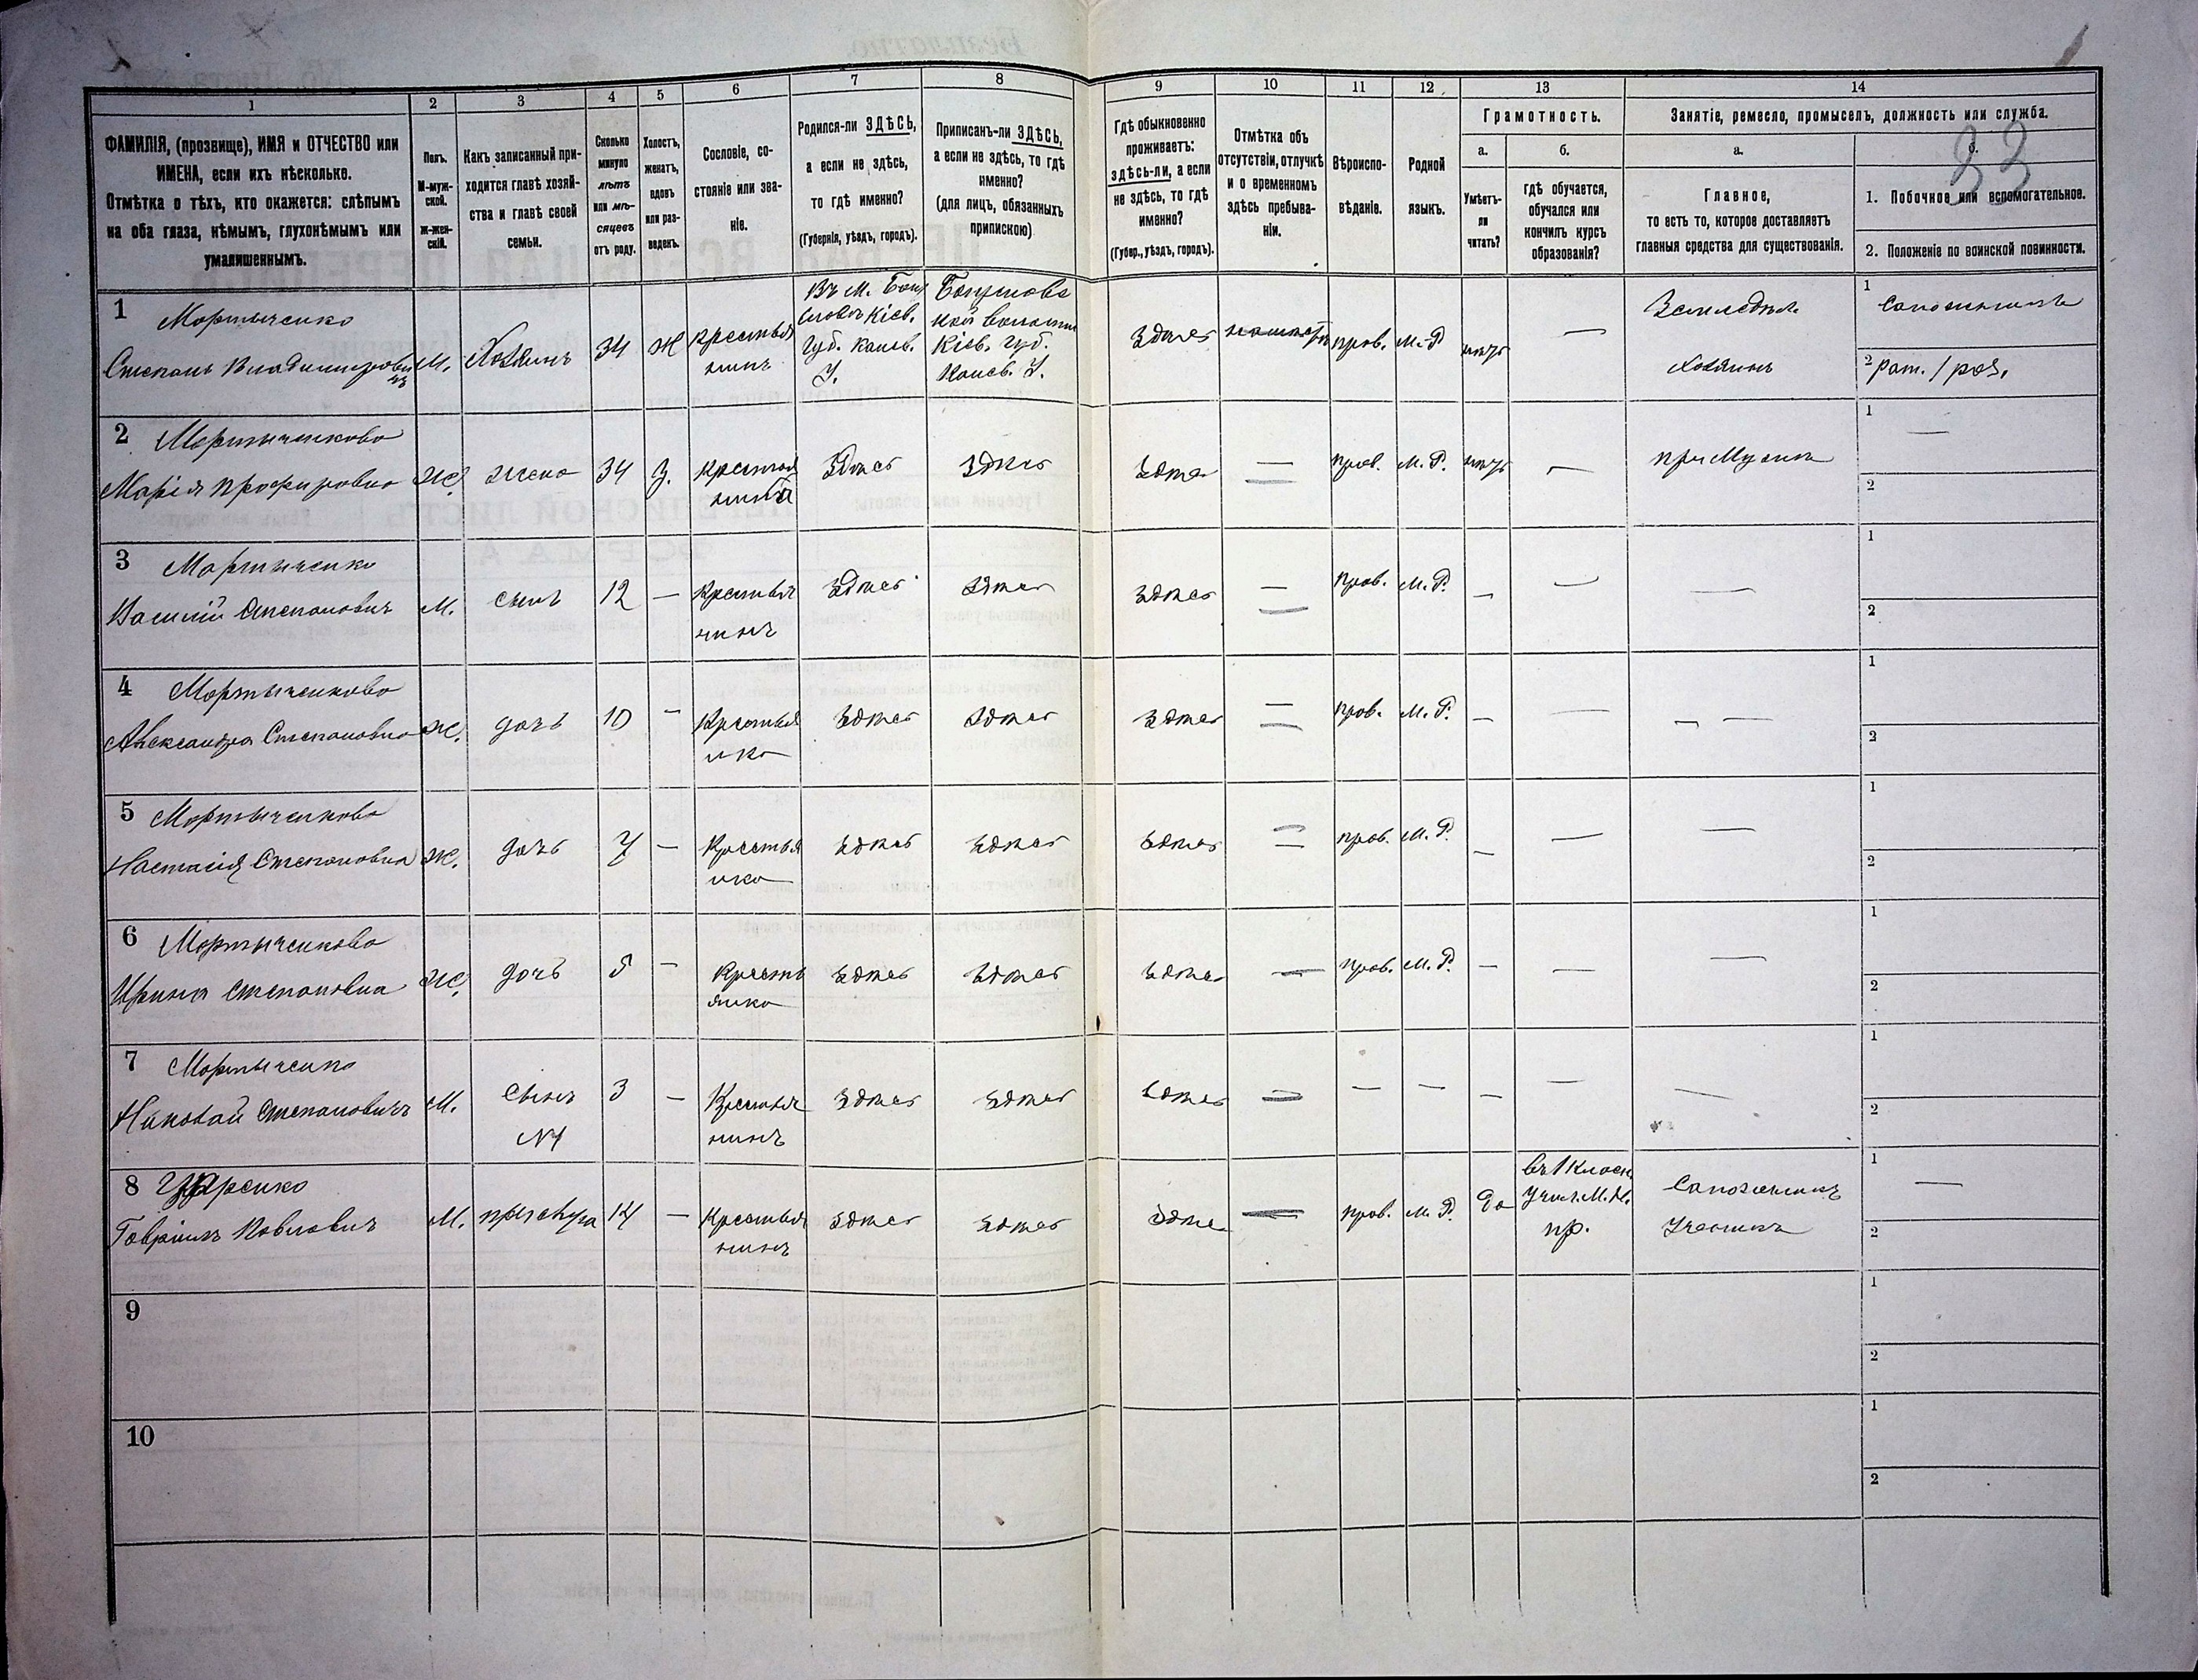 1 2 3 4 5 6 7 8 9 10 11 12 13 14
ФАМИЛІЯ, (прозвище), ИМЯ и ОТЧЕСТВО или
ИМЕНА, если ихъ нѣсколько.
Отмѣтка о тѣхъ, кто окажется: слѣпымъ
на оба глаза, нѣмымъ, глухонѣмымъ или
умалишеннымъ.
Полъ.
М-муж-
ской.
ж-жен-
скій.
Какъ записанный при-
ходится главѣ хозяй-
ства и главѣ своей
семьи.
Сколько
минуло
лѣтъ
или мѣ-
сяцевъ
отъ роду.
Холостъ,
женатъ,
вдовъ
или раз-
веденъ.
Сословіе, со-
стояніе или зва-
ніе.
Родился-ли ЗДѢСЬ,
а если не здѣсь,
то гдѣ именно?
(Губернія, уѣздъ, городъ).
Приписанъ-ли ЗДѢСЬ,
а если не здѣсь, то гдѣ
именно?
(для лицъ, обязанныхъ
припискою)
Гдѣ обыкновенно
проживаетъ:
здѣсь-ли, а если
не здѣсь, то гдѣ
именно?
(Губер., уѣздъ, городъ).
Отмѣтка объ
отсутствіи, отлучкѣ
и о временномъ
здѣсь пребыва-
ніи.
Вѣроиспо-
вѣданіе.
Родной
языкъ.
Грамотность.
а.
Умѣетъ-
ли
читать?
б.
гдѣ обучается,
обучался или
кончилъ курсъ
образованія?
Занятіе, ремесло, промыселъ, должность или служба.
а.
Главное,
то есть то, которое доставляетъ
главныя средства для существованія.
б.
33
1. Побочное или вспомогательное.
2. Положеніе по воинской повинности.
1 Мартыченко
Степанъ Владимировичъ
М. Хозяинъ 34 Ж Крестья
нинъ
Кіев.
Губ. Канев.
У.
Кіев. Губ.
Канев. У.
Здѣсь прав. М.Р нѣтъ —
Земледѣл.
Хозяинъ
1 Сапожникъ
2 Рат. 1 раз.
2 Мартыченкова
Марія Профировна
Ж. жена 34 З. Крестья Здѣсь Здѣсь Здѣсь — прав. М.Р. нѣтъ — при Мужѣ 1 —
2
3 Мартыченко
Василій Степановичъ
М. сынъ 12 — Крестья
нинъ
Здѣсь Здѣсь Здѣсь — прав. М.Р. — — — 1
2
4 Мартыченкова
Александра Степановна
Ж. дочь 10 — Крестья
нка
Здѣсь Здѣсь Здѣсь — прав. М.Р. — — — 1
2
5 Мартыченкова
Настасія Степановна
Ж. дочь 7 — Крестья
нка
Здѣсь Здѣсь Здѣсь — прав. М.Р. — — — 1
2
6 Мартыченкова
Ирина Степановна
Ж. дочь 5 — Кресть
янка
Здѣсь Здѣсь Здѣсь — прав. М.Р. — — — 1
2
7 Мартыченко
Николай Степановичъ
М. сынъ 3 — Крестья
нинъ
Здѣсь Здѣсь Здѣсь — — — — — — 1
2
8
Гавріилъ Павловичъ
М. прислуга 14 — Крестья
нинъ
Здѣсь Здѣсь Здѣсь — прав. М.Р. да
въ 1 Класн.
Учил. М. Н.
пр.
Сапожникъ
Ученикъ
1 —
2
9 1
2
10 1
2